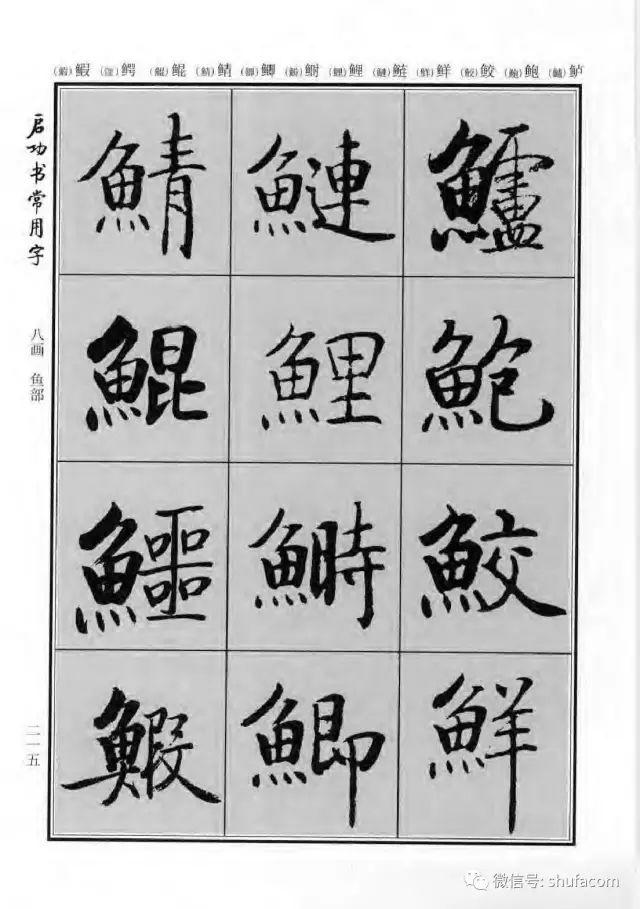 鲈(鱸) 鲍(鮑) 鲛(鮫) 鲜(鮮) 鲢(鰱) 鲤(鯉) 鲥(鰣) 鲫(鯽) 鲭(鯖) 鲲(鯤) 鳄(鱷) 鰕(鰕)
鱸鮑鮫鮮
鰱鯉鰣鯽
鯖鯤鱷鰕
启功书常用字
八画 鱼部
二一五
微信号: shufacom